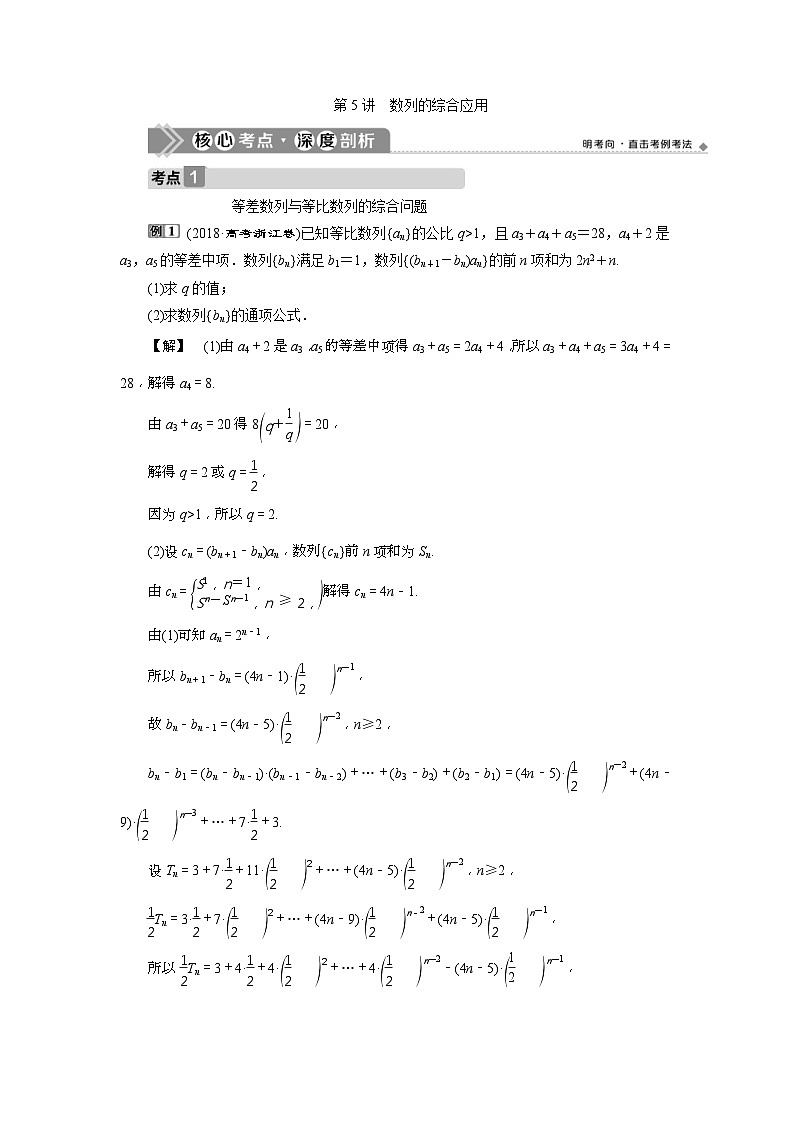 第5讲 数列的综合应用
核心考点·深度剖析 明考向·直击考例考法
考点1
等差数列与等比数列的综合问题
例1 (2018·高考浙江卷)已知等比数列{aₙ}的公比 q>1，且 a₃＋a₄＋a₅＝28，a₄＋2 是
a₃，a₅的等差中项．数列{bₙ}满足 b₁＝1，数列{(bₙ₊₁－bₙ)aₙ}的前 n 项和为 2n²＋n.
(1)求 q 的值；
(2)求数列{bₙ}的通项公式．
【解】 (1)由 a₄＋2 是 a₃，a₅的等差中项得 a₃＋a₅＝2a₄＋4，所以 a₃＋a₄＋a₅＝3a₄＋4＝
28，解得 a₄＝8.
由 a₃＋a₅＝20 得 8(q＋1/q)＝20，
解得 q＝2 或 q＝1/2，
因为 q>1，所以 q＝2.
(2)设 cₙ＝(bₙ₊₁－bₙ)aₙ，数列{cₙ}前 n 项和为 Sₙ.
由 cₙ＝{S¹，n＝1，
Sⁿ－Sⁿ⁻¹，n≥2，)解得 cₙ＝4n－1.
由(1)可知 aₙ＝2ⁿ⁻¹，
所以 bₙ₊₁－bₙ＝(4n－1)·(1/2)ⁿ⁻¹，
故 bₙ－bₙ₋₁＝(4n－5)·(1/2)ⁿ⁻²，n≥2，
bₙ－b₁＝(bₙ－bₙ₋₁)·(bₙ₋₁－bₙ₋₂)＋…＋(b₃－b₂)＋(b₂－b₁)＝(4n－5)·(1/2)ⁿ⁻²＋(4n－
9)·(1/2)ⁿ⁻³＋…＋7·1/2＋3.
设 Tₙ＝3＋7·1/2＋11·(1/2)²＋…＋(4n－5)·(1/2)ⁿ⁻²，n≥2，
1/2Tₙ＝3·1/2＋7·(1/2)²＋…＋(4n－9)·(1/2)ⁿ⁻²＋(4n－5)·(1/2)ⁿ⁻¹，
所以1/2Tₙ＝3＋4·1/2＋4·(1/2)²＋…＋4·(1/2)ⁿ⁻²－(4n－5)·(1/2)ⁿ⁻¹，